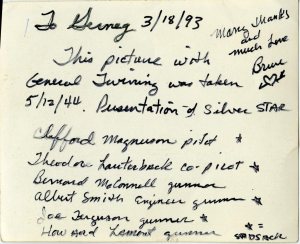 To Gerney 3/18/93
Many thanks
and
much Love
Bruce
This picture with
General Twining was taken
5/12/44. Presentation of Silver STAR
Clifford Magnuson pilot *
Theodore Lauterback co-pilot *
Bernard McConnell gunner
Albert Smith Engineer gunner *
Joe Ferguson gunner *
Howard Lamont gunner
* =
SADSACK